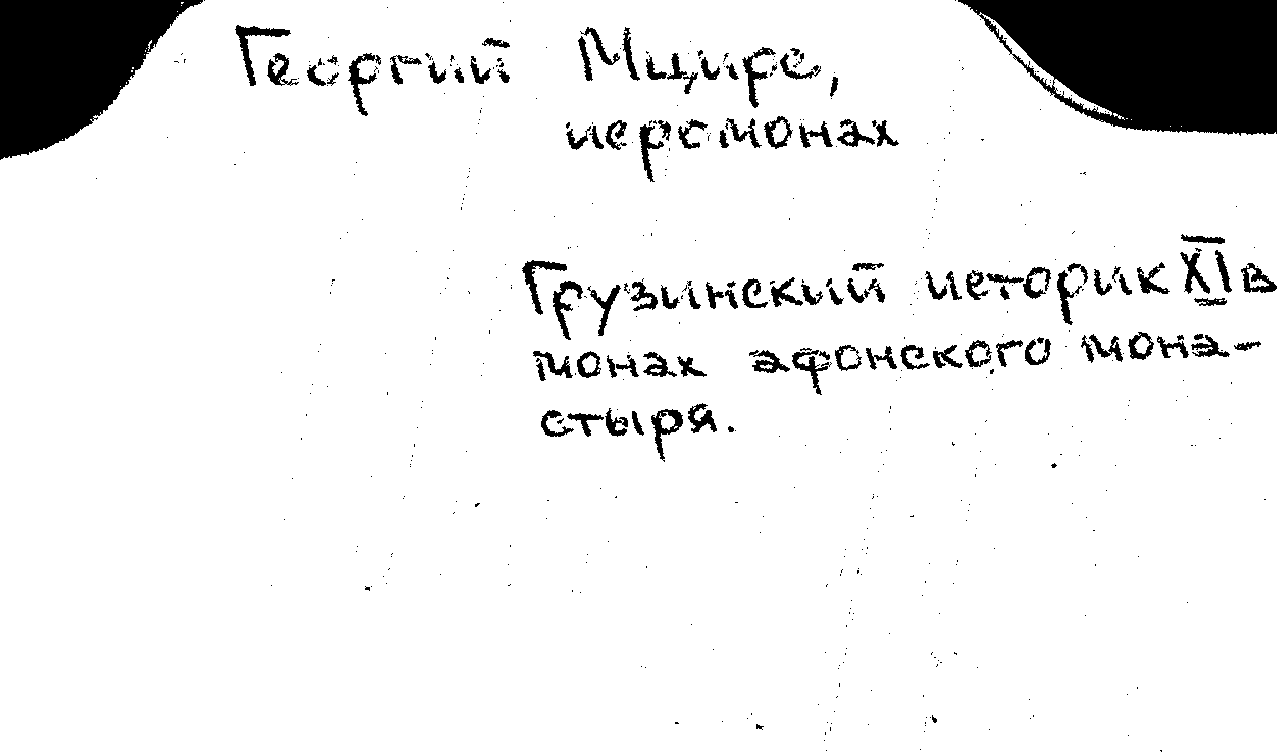 Георгий Мцире,
иеромонах
Грузинский историк XI в
монах афонского мона-
стыря.